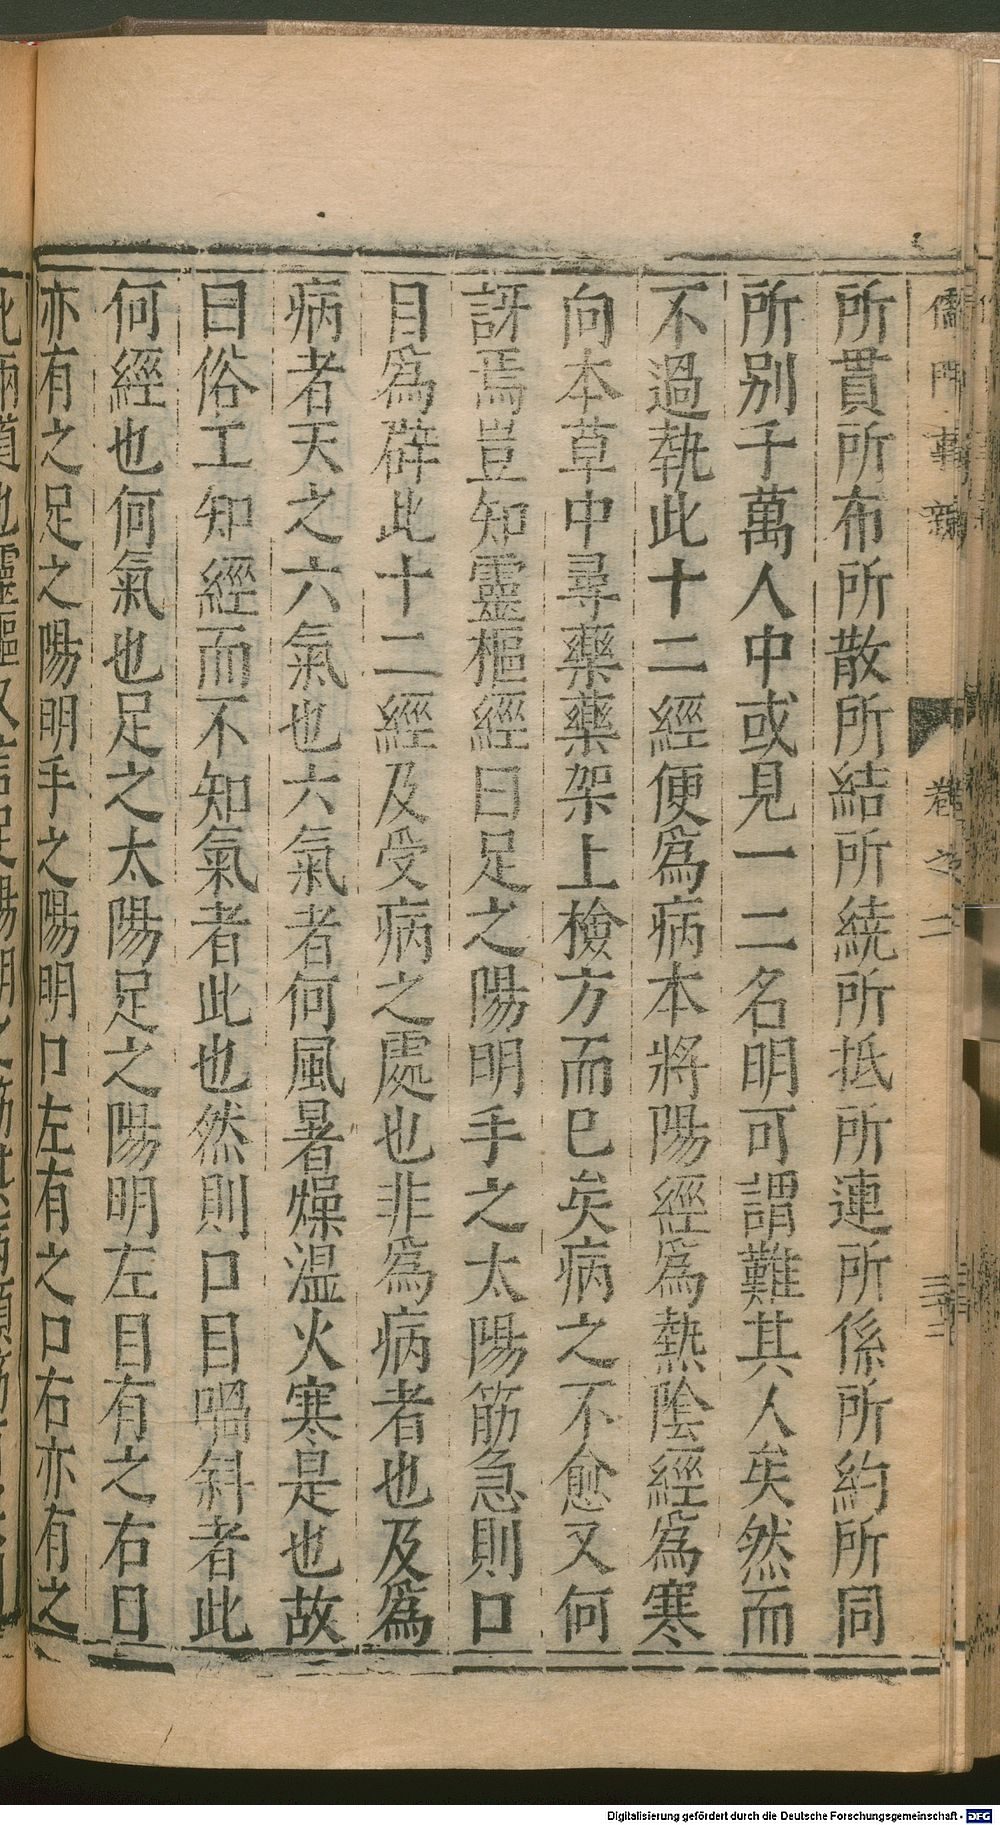 儒門事親 卷之二 三十二
所貫所布所散所結所繞所抵所連所係所約所同
所别千萬人中或見一二名明可謂難其人矣然而
不過執此十二經便爲病本將陽經爲熱陰經爲寒
向本草中尋藥藥架上檢方而已矣病之不愈又何
訝焉豈知靈樞經曰足之陽明手之太陽筋急則口
目爲辟此十二經及受病之處也非爲病者也及爲
病者天之六氣也六氣者何風暑燥温火寒是也故
曰俗工知經而不知氣者此也然則口目喎斜者此
何經也何氣也足之太陽足之陽明左目有之右目
亦有之足之陽明手之陽明口左有之口右亦有之
Digitalisierung gefördert durch die Deutsche Forschungsgemeinschaft - DFG